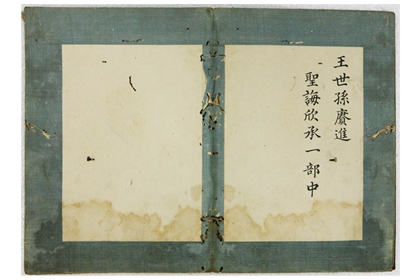 王世孫賡進
聖誨欣承一部中